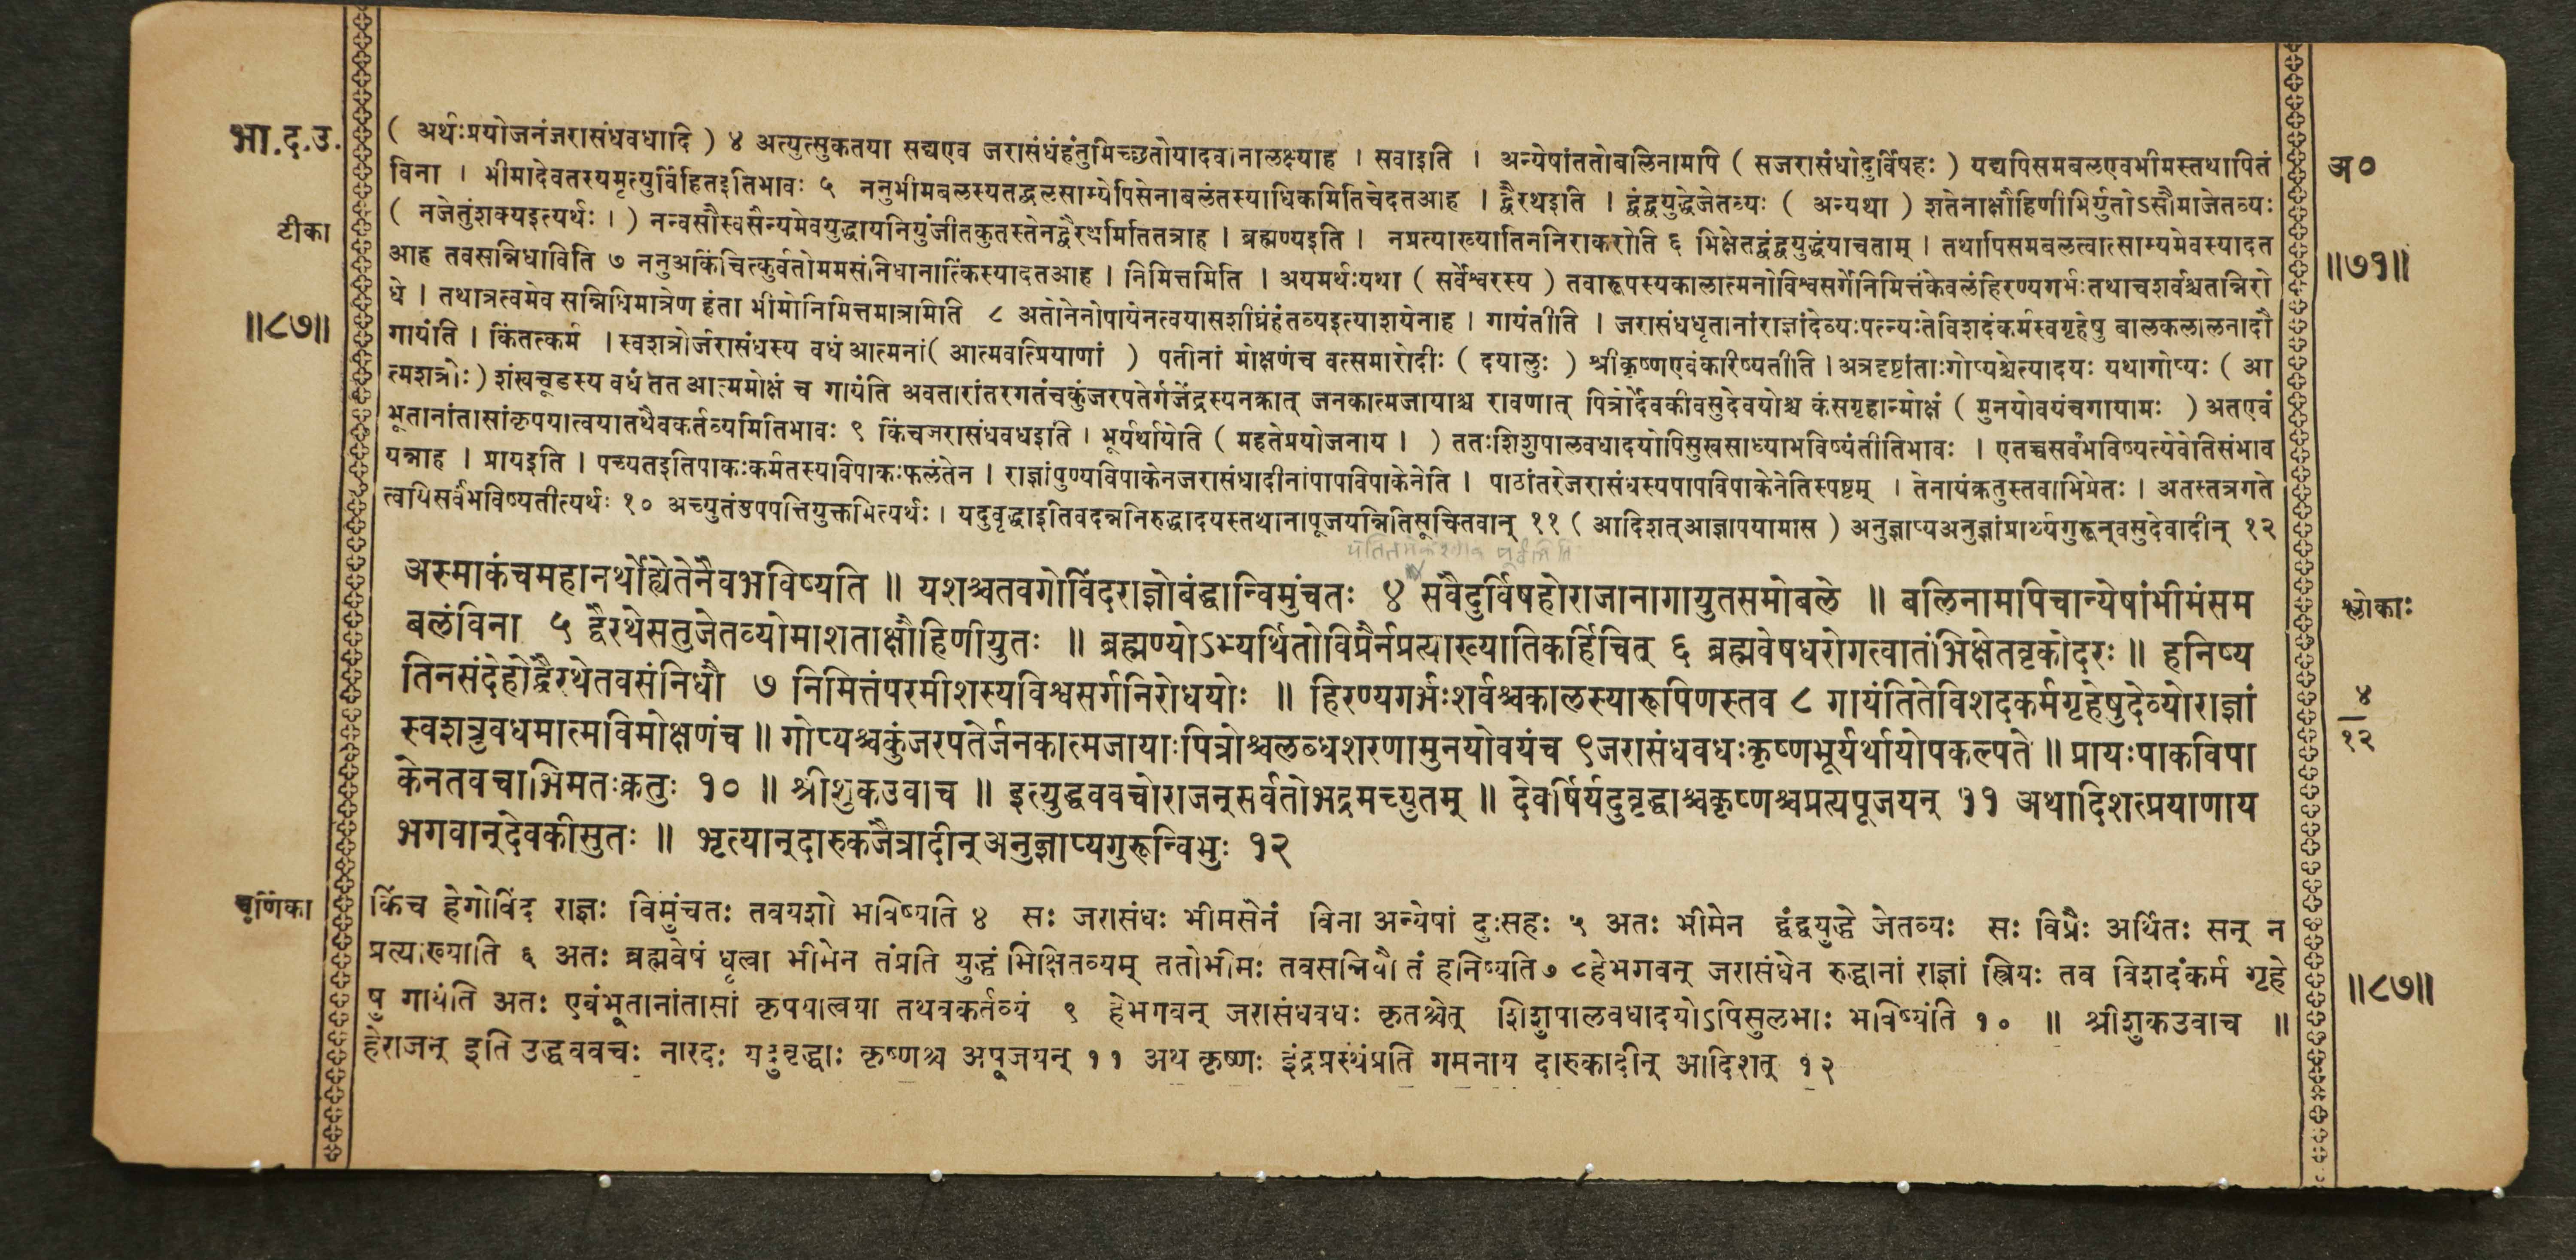 भा.द.उ.
टीका
॥८७॥
( अर्थःप्रयोजनंजरासंधवधादि ) ४ अत्युत्सुकतया सद्यएव जरासंधंहंतुमिच्छतोयादवानालक्ष्याह । सवाइति । अन्येषांततोबलिनामपि ( सजरासंधोदुर्विषहः ) यद्यपिसमबलएवभीमस्तथापितं
विना । भीमादेवतस्यमृत्युर्विहितइतिभावः ५ ननुभीमबलस्यतद्बलसाम्येपिसेनाबलंतस्याधिकमितिचेदतआह । द्वैरथइति । द्वंद्वयुद्धेजेतव्यः ( अन्यथा ) शतेनाक्षौहिणीभिर्युतोऽसौमाजेतव्यः
( नजेतुंशक्यइत्यर्थः । ) नन्वसौस्वसैन्यमेवयुद्धायनियुंजीतकुतस्तेनद्वैरथमितितत्राह । ब्रह्मण्यइति । नप्रत्याख्यातिननिराकरोति ६ भिक्षेतद्वंद्वयुद्धंयाचताम् । तथापिसमबलत्वात्साम्यमेवस्यादत
आह तवसन्निधाविति ७ ननुअकिंचित्कुर्वतोममसंनिधानात्किंस्यादतआह । निमित्तमिति । अयमर्थःयथा ( सर्वेश्वरस्य ) तवारूपस्यकालात्मनोविश्वसर्गेनिमित्तंकेवलंहिरण्यगर्भःतथाचशर्वश्चतन्निरो
धे । तथात्रत्वमेव सन्निधिमात्रेण हंता भीमोनिमित्तमात्रमिति ८ अतोनेनोपायेनत्वयासशीघ्रंहंतव्यइत्याशयेनाह । गायंतीति । जरासंधधृतानांराज्ञांदेव्यःपत्न्यःतेविशदंकर्मस्वगृहेषु बालकलालनादौ
गायंति । किंतत्कर्म । स्वशत्रोर्जरासंधस्य वधं आत्मनां( आत्मवत्प्रियाणां ) पतीनां मोक्षणंच वत्समारोदीः ( दयालुः ) श्रीकृष्णएवंकरिष्यतीति । अत्रदृष्टांताःगोप्यश्चेत्यादयः यथागोप्यः ( आ
त्मशत्रोः ) शंखचूडस्य वधं तत आत्ममोक्षं च गायंति अवतारांतरगतंचकुंजरपतेर्गजेंद्रस्यनक्रात् जनकात्मजायाश्च रावणात् पित्रोर्देवकीवसुदेवयोश्च कंसगृहान्मोक्षं ( मुनयोवयंचगायामः ) अतएवं
भूतानांतासांकृपयात्वयातथैवकर्तव्यमितिभावः ९ किंचजरासंधवधइति । भूर्यर्थायेति ( महतेप्रयोजनाय । ) ततःशिशुपालवधादयोपिसुखसाध्याभविष्यंतीतिभावः । एतच्चसर्वंभविष्यत्येवेतिसंभाव
यन्नाह । प्रायइति । पच्यतइतिपाकःकर्मतस्यविपाकःफलंतेन । राज्ञांपुण्यविपाकेनजरासंधादीनांपापविपाकेनेति । पाठांतरेजरासंधस्यपापविपाकेनेतिस्पष्टम् । तेनायंक्रतुस्तवाभिप्रेतः । अतस्तत्रगते
त्वयिसर्वंभविष्यतीत्यर्थः १० अच्युतंउपपत्तियुक्तमित्यर्थः । यदुवृद्धाइतिवदन्ननिरुद्धादयस्तथानापूजयन्नितिसूचितवान् ११ ( आदिशत्आज्ञापयामास ) अनुज्ञाप्यअनुज्ञांप्रार्थ्यगुरून्वसुदेवादीन् १२
अस्माकंचमहानर्थोह्येतेनैवभविष्यति ॥ यशश्चतवगोविंदराज्ञोबंद्धान्विमुंचतः ४ सवैदुर्विषहोराजानागायुतसमोबले ॥ बलिनामपिचान्येषांभीमंसम
बलंविना ५ द्वैरथेसतुजेतव्योमाशताक्षौहिणीयुतः ॥ ब्रह्मण्योऽभ्यर्थितोविप्रैर्नप्रत्याख्यातिकर्हिचित् ६ ब्रह्मवेषधरोगत्वातंभिक्षेतवृकोदरः ॥ हनिष्य
तिनसंदेहोद्वैरथेतवसंनिधौ ७ निमित्तंपरमीशस्यविश्वसर्गनिरोधयोः ॥ हिरण्यगर्भःशर्वश्चकालस्यारूपिणस्तव ८ गायंतितेविशदकर्मगृहेषुदेव्योराज्ञां
स्वशत्रुवधमात्मविमोक्षणंच ॥ गोप्यश्चकुंजरपतेर्जनकात्मजायाःपित्रोश्चलब्धशरणामुनयोवयंच ९जरासंधवधःकृष्णभूर्यर्थायोपकल्पते ॥ प्रायःपाकविपा
केनतवचाभिमतःक्रतुः १० ॥ श्रीशुकउवाच ॥ इत्युद्धववचोराजन्सर्वतोभद्रमच्युतम् ॥ देवर्षिर्यदुवृद्धाश्चकृष्णश्चप्रत्यपूजयन् ११ अथादिशत्प्रयाणाय
भगवान्देवकीसुतः ॥ भृत्यान्दारुकजैत्रादीन्अनुज्ञाप्यगुरून्विभुः १२
चूर्णिका
किंच हेगोविंद राज्ञः विमुंचतः तवयशो भविष्यति ४ सः जरासंधः भीमसेनं विना अन्येषां दुःसहः ५ अतः भीमेन द्वंद्वयुद्धे जेतव्यः सः विप्रैः अर्थितः सन् न
प्रत्याख्याति ६ अतः ब्रह्मवेषं धृत्वा भीमेन तंप्रति युद्धं भिक्षितव्यम् ततोभीमः तवसन्निधौ तं हनिष्यति ७ ८हेभगवन् जरासंधेन रुद्धानां राज्ञां स्त्रियः तव विशदंकर्म गृहे
षु गायंति अतः एवंभूतानांतासां कृपयात्वया तथवकर्तव्यं ९ हेभगवन् जरासंधवधः कृतश्चेत् शिशुपालवधादयोऽपिसुलभाः भविष्यंति १० ॥ श्रीशुकउवाच ॥
हेराजन् इति उद्धववचः नारदः यदुवृद्धाः कृष्णश्च अपूजयन् ११ अथ कृष्णः इंद्रप्रस्थंप्रति गमनाय दारुकादीन् आदिशत् १२
अ०
॥७१॥
श्लोकाः
४
१२
॥८७॥